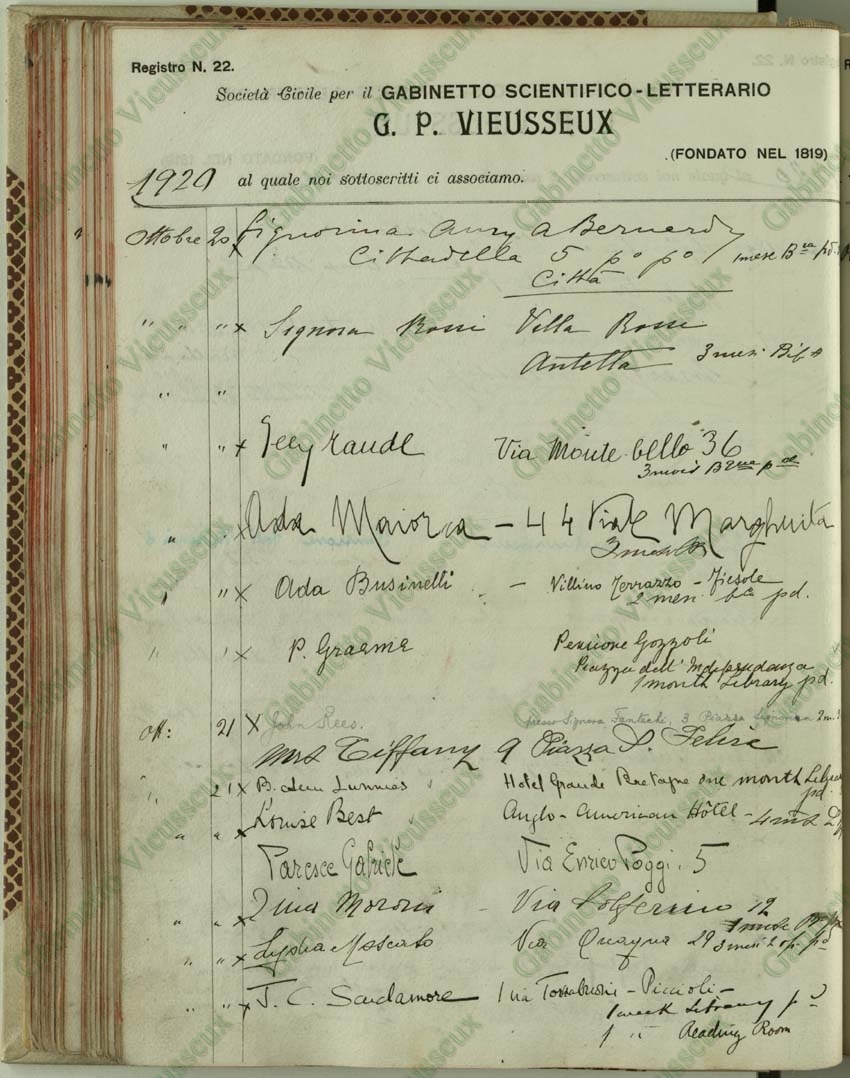 Registro N. 22.
Società Civile per il GABINETTO SCIENTIFICO-LETTERARIO
G. P. VIEUSSEUX
(FONDATO NEL 1819)
1920 al quale noi sottoscritti ci associamo.
Ottobre 20 x Signorina Amy A Bernardy
Cittadella 5 po po 1 mese Bca pd.
Città
" " " x Signora Rossi Villa Rossi
Antella 3 mesi
" "
" " x Via Montebello 36
3 mois
" x Ada Maiorca - 44 Viale Margherita
3 mesi
" " x Ada Businelli - Villino Terrazzo - Fiesole
2 mesi bca pd.
" " x P. Graeme Pensione Gozzoli
Piazza dell' Indipendenza
1 month Library pd.
Ott: 21 x John Rees. presso Signora Fantechi, 3 Piazza Signoria 2 m.
Mrs Tiffany 9 Piazza S. Felice
" 21 x Hotel Grande Bretagne one month Library
pd.
" " x Louise Best Anglo-American Hôtel - 4 ms
Paresce Gabriele Via Enrico Poggi. 5
" " x Moroni - Via Solferino 12
1 mese
" " x Lydia Moscato Via 29 3 mesi 2 op. pd
" " x J. C. Scudamore Via Tornabuoni - Piccioli -
1 week Library pd
1 " Reading Room